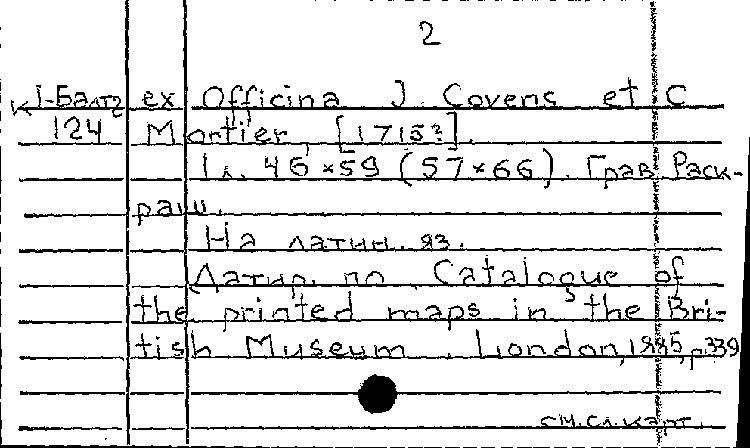 2
К 1-Балт2 ex Officina J. Covens et C
124 Mortier, [1715?].
1 л. 46×59 (57×66). Грав. Раск-
раш.
На латин. яз.
Датир. по Catalogue of
the printed maps in the Bri-
tish Museum. London, 1885, p339
см. сл. карт.